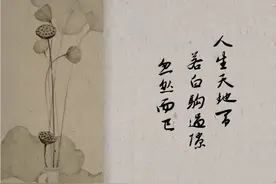 人生天地间
若白駒过隙
忽然而已